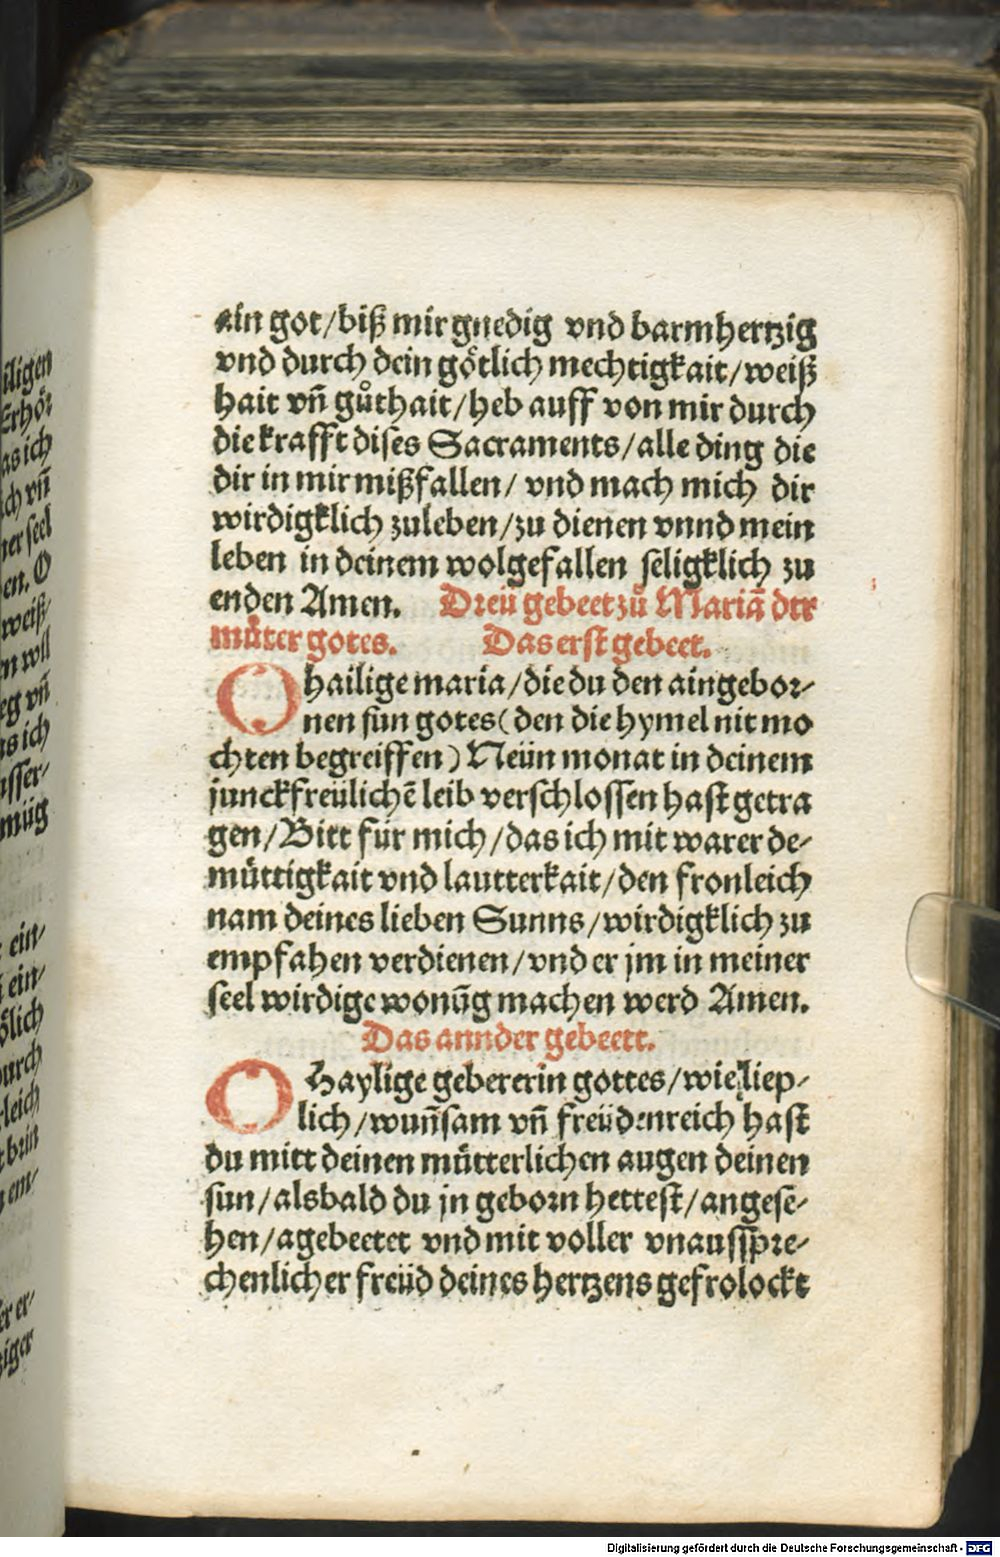 ain got/biß mir gnedig vnd barmhertzig
vnd durch dein goͤtlich mechtigkait/weiß
hait vn̄ guͦthait/heb auff von mir durch
die krafft diſes Sacraments/alle ding die
dir in mir mißfallen/ vnd mach mich dir
wirdigklich zuleben/zu dienen vnnd mein
leben in deinem wolgefallen ſeligklich zu
enden Amen. Dreü gebeet zů Mariā der
můter gotes. Das erſt gebeet.
O hailige maria/die du den aingebor⸗
nen ſun gotes(den die hymel nit mo
chten begreiffen) Neün monat in deinem
junckfreülichē leib verſchloſſen haſt getra
gen/Bitt für mich/das ich mit warer de⸗
muͤttigkait vnd lautterkait/den fronleich
nam deines lieben Sunns/wirdigklich zu
empfahen verdienen/vnd er jm in meiner
ſeel wirdige wonūg machen werd Amen.
Das annder gebeett.
O Haylige gebererin gottes/wie liep⸗
lich/wun̄ſam vn̄ freüdenreich haſt
du mitt deinen muͤtterlichen augen deinen
ſun/alsbald du jn geborn hetteſt/angeſe⸗
hen/agebeetet vnd mit voller vnausſpre⸗
chenlicher freüd deines hertzens gefrolockt
iligen
Erhoͤr
as ich
ch vn̄
ner ſeel
en. O
weiß⸗
n woll
eg vn̄
ns ich
uſſer⸗
müg
ein⸗
ein⸗
oͤlich
urch
leich
brin
em⸗
er er⸗
ziger
Digitalisierung gefördert durch die Deutsche Forschungsgemeinschaft - DFG